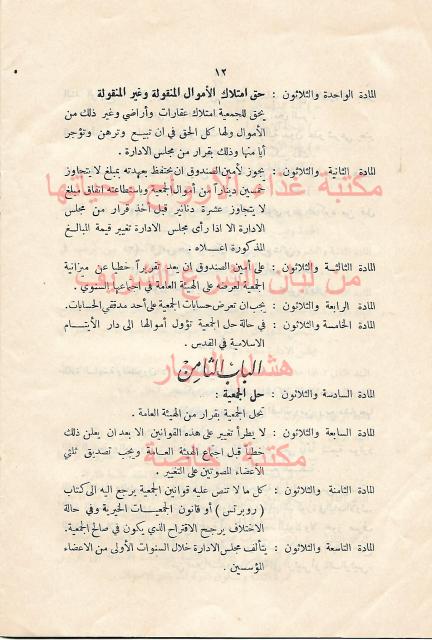 ١٢
المادة الواحدة والثلاثون : حق امتلاك الأموال المنقولة وغير المنقولة
يحق للجمعية امتلاك عقارات وأراضي وغير ذلك من
الأموال ولها كل الحق في ان تبيع وترهن وتؤجر
أيا منها وذلك بقرار من مجلس الادارة .
المادة الثانية والثلاثون : يجوز لأمين الصندوق ان يحتفظ بعهدته بمبلغ لا يتجاوز
مكتبة غذاء الأرواح وحياتها
خمسين ديناراً من أموال الجمعية وباستطاعته انفاق مبلغ
لا يتجاوز عشرة دنانير قبل اخذ قرار من مجلس
الادارة الا اذا رأى مجلس الادارة تغيير قيمة المبالغ
المذكورة اعلاه .
المادة الثالثة والثلاثون : على أمين الصندوق ان يعد تقريراً خطيا عن ميزانية
من لبان الشرع الشريف
الجمعية لعرضه على الهيئة العامة في اجتماعها السنوي .
المادة الرابعة والثلاثون : يجب ان تعرض حسابات الجمعية على أحد مدققي الحسابات.
المادة الخامسة والثلاثون : في حالة حل الجمعية تؤول أموالها الى دار الأيتام
الاسلامية في القدس .
الباب الثامن
هشام النجار
المادة السادسة والثلاثون : حل الجمعية :
تحل الجمعية بقرار من الهيئة العامة .
المادة السابعة والثلاثون : لا يطرأ تغيير على هذه القوانين الا بعد ان يعلن ذلك
خطياً قبل اجتماع الهيئة العامة ويجب تصديق ثلثي
مكتبة خاصة
الأعضاء المصوتين على التغيير .
المادة الثامنة والثلاثون : كل ما لا تنص عليه قوانين الجمعية يرجع اليه الى كتاب
( روبرتس ) أو قانون الجمعيات الخيرية وفي حالة
الاختلاف يرجح الاقتراح الذي يكون في صالح الجمعية.
المادة التاسعة والثلاثون : يتألف مجلس الادارة خلال السنوات الأولى من الاعضاء
المؤسسين .